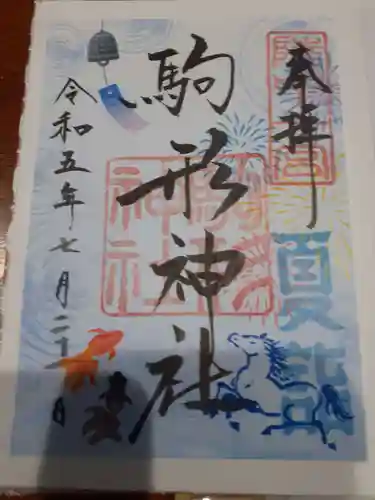 奉拝
駒形神社
令和五年七月二十一日
夏詣
駒形神社